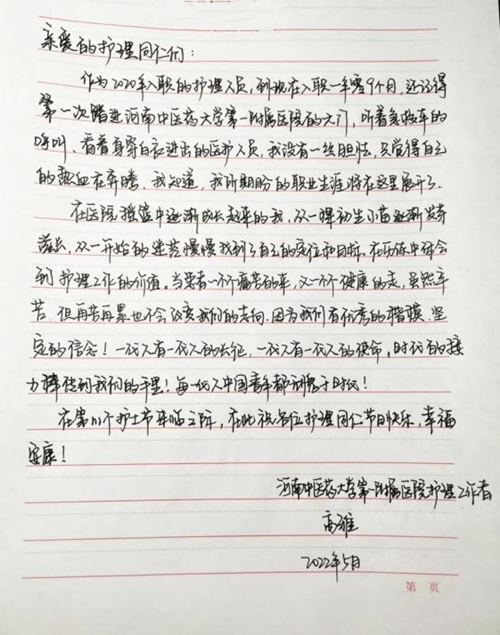 亲爱的护理同仁们:
作为2020年入职的护理人员,到现在入职一年零9个月,还记得
第一次踏进河南中医药大学第一附属医院的大门,听着急救车的
呼叫、看着身穿白衣进出的医护人员,我没有一丝胆怯,只觉得自己
的热血在奔腾,我知道,我所期盼的职业生涯将在这里展开了。
在医院摇篮中逐渐成长起来的我,从一棵初生小苗逐渐发芽
滋长,从一开始的迷茫慢慢找到了自己的定位和目标,在历练中体会
到护理工作的价值。当来者一个个痛苦的来,又一个个健康的走,虽然辛
苦,但再苦再累也不会改变我们的志向,因为我们有优秀的楷模、坚
定的信念!一代人有一代人的长征,一代人有一代人的使命,时代的接
力棒传到我们的手里!每一代人中国青年都
在第111个护士节来临之际,在此祝各位护理同仁节日快乐,幸福
安康!
河南中医药大学第一附属医院护理工作者
高雅
2022年5月
第 页